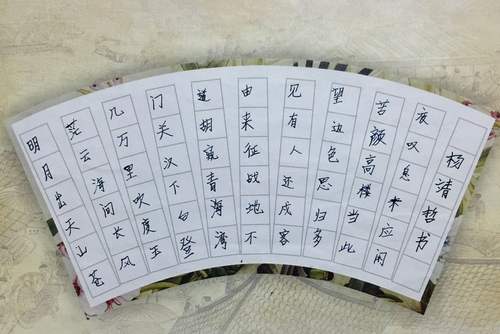 明月出天山苍
茫云海间长风
几万里吹度玉
门关汉下白登
道胡窥青海湾
由来征战地不
见有人还戍客
望边色思归多
苦颜高楼当此
夜叹息未应闲
杨清哲书